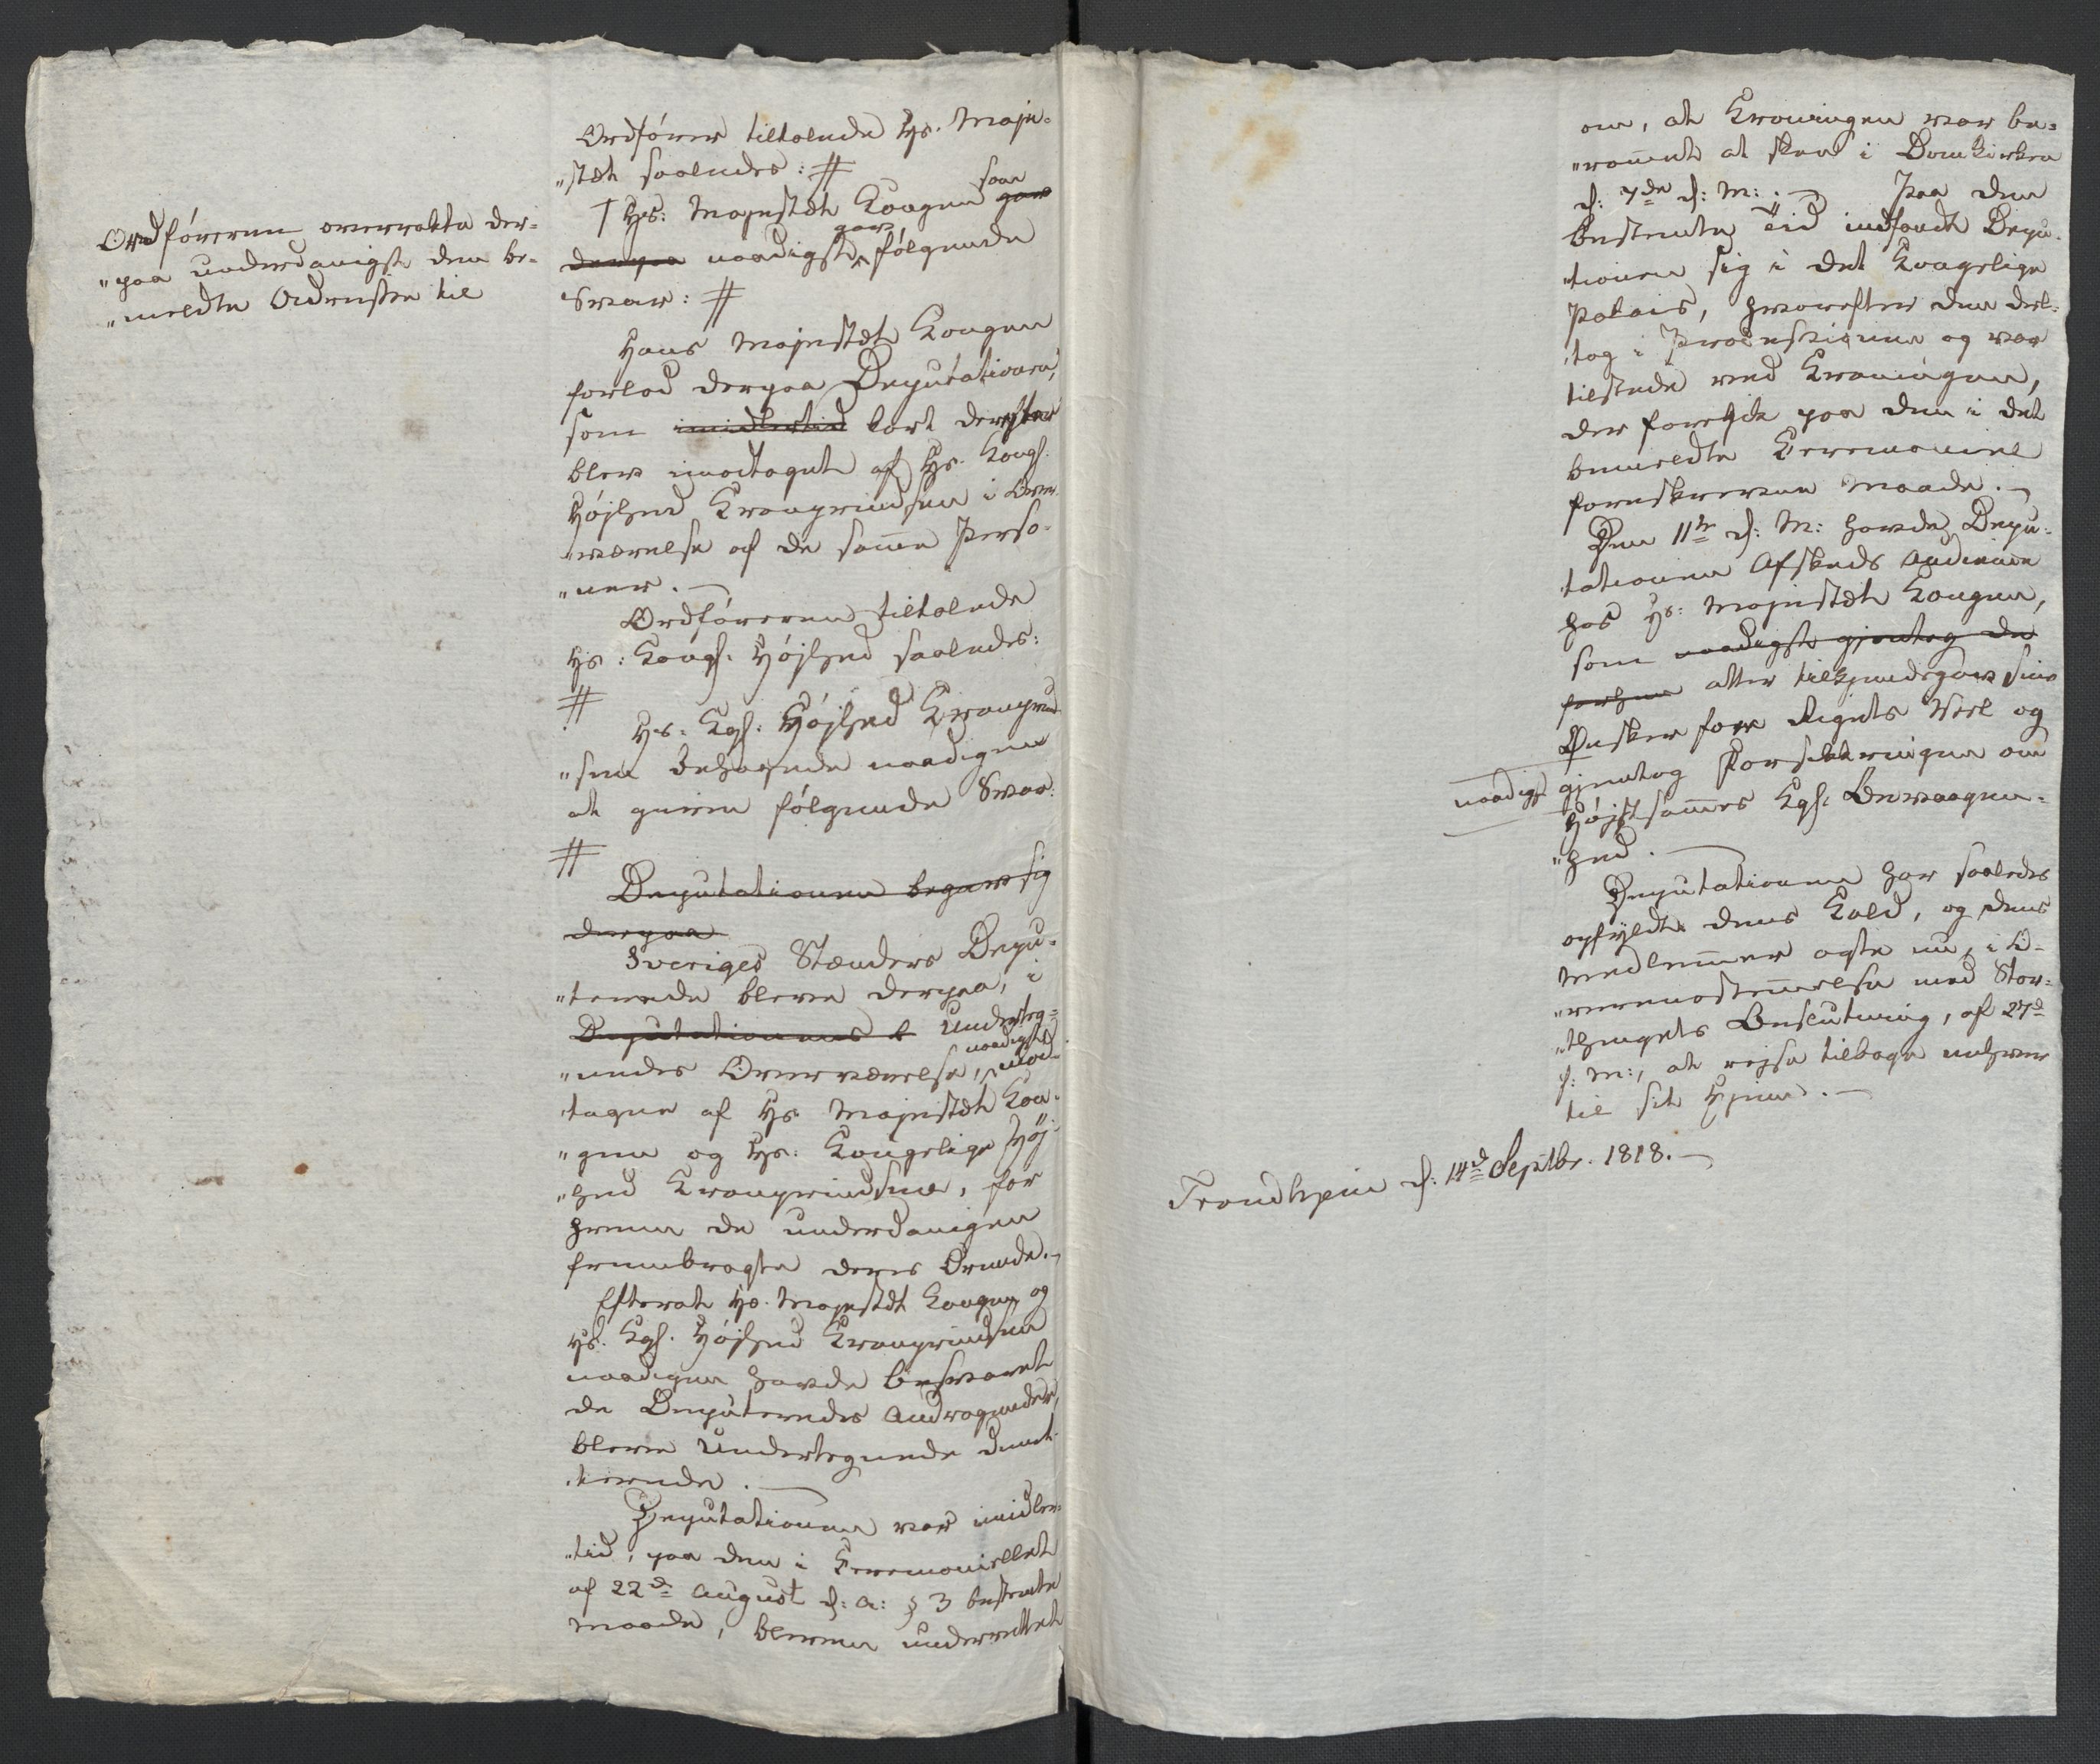 Ordføreren overrakte der-
"paa underdanigst den be-
"meldte Adresse til
Ordfører tiltalede Hs. Maje-
"stæt saaledes: #
† Hs: Majestæt Kongen gav saa
derpaa naadigst gav følgende
Svar: #
Hans Majestæt Kongen
forlod derpaa Deputationen,
som imidlertid kort derefter
blev imodtaget af Hs. Kongl.
Højhed Kronprindsen i Over-
"værelse af de samme Perso-
"ner. —
Ordføreren tiltalede
Hs: Kongl. Højhed saaledes:
#
Hs: Kgl: Højhed Kronprind-
"sen behagede naadigen
at give følgende Svar:
#
Deputationen begav sig
derpaa
Sveriges Stænders Depu-
"terede bleve derpaa, i
Deputationens b Underteg-
"nedes Overværelse, naadigst mod-
"tagne af Hs. Majestæt Kon-
"gen og Hs: Kongelige Høj-
"hed Kronprindsen, for
hvem de underdanigen
frembragte deres Ærende. —
Efterat Hs. Majestæt Kongen og
Hs. Kgl. Højhed Kronprindsen
naadigen havde besvaret
de Deputeredes Andragender,
bleve Undertegnede dimit-
"terede. —
Deputationen var imidler-
"tid, paa den i Ceremoniellet
af 22de August d: A: § 3 bestemte
Maade, bleven underrettet
om, at Kroningen var be-
"rammet at skee i Domkirken
d: 7de d: M: . — Paa den
bestemte Tid indfandt Depu-
"tionen sig i det Kongelige
Palais, hvorefter den del-
"tog i Processionen og var
tilstede ved Kroningen,
der foregik paa den i det
bemeldte Ceremoniel
foreskrevne Maade. —
Den 11te d: M: havde Depu-
tationen Afskeds Audience
hos Hs: Majestæt Kongen,
som naadigst gjentog de
forhen atter tilkjendegav sine
Ønsker for Rigets Vel og
naadigst gjentog Forsikkringen om
Højstsammes Kgl: Bevaagen-
"hed. —
Deputationen har saaledes
opfyldt dens Kald, og dens
Medlemmer agte nu, i O-
"verensstemmelse med Stor-
"thingets Beslutning, af 27d
f: M:, at rejse tilbage enhver
til sit Hjem. —
Trondhjem d: 14d Septbr. 1818. —